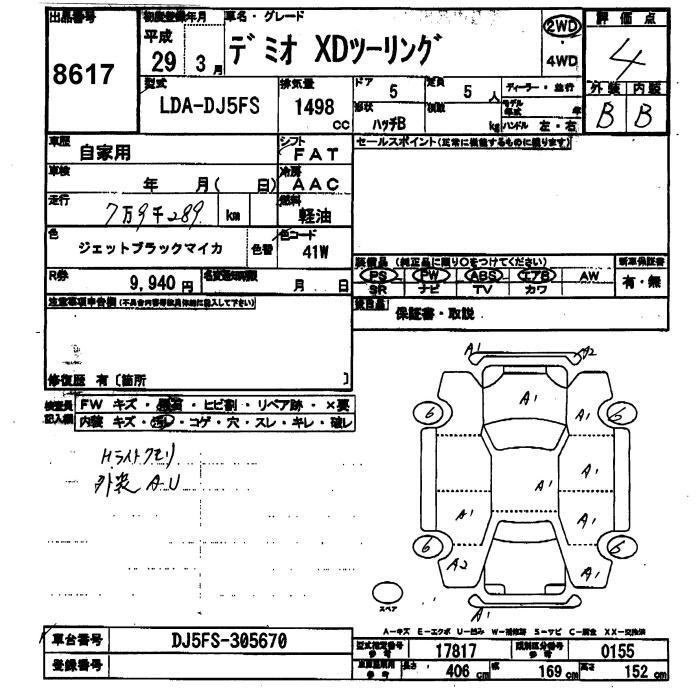 出品番号 初度登録年月 車名・グレード 評価点
8617 平成 29 3月 デミオ XDツーリング 2WD 4WD 4
型式 排気量 ドア 定員 外装 内装
LDA-DJ5FS 1498 cc 5 5人 B B
形状 ハッチB kg ハンドル 左・右
車歴 自家用 シフト FAT セールスポイント(正常に機能するものに限ります)
車検 年 月( 日) 冷房 AAC
走行 7万9千289 km 燃料 軽油
色 ジェットブラックマイカ 色替 色コード 41W
装備品 (純正品に限り○をつけてください) 新車保証書
R券 9,940円 月 日
PS PW ABS エアB AW 有・無
SR ナビ TV カワ
注意事項申告欄 後日品 保証書・取説
修復歴 有〔箇所 〕
検査員記入欄 FW キズ・ ・ヒビ割・リペア跡・×要
内装 キズ・ ・コゲ・穴・スレ・キレ・破レ
Hライトクモリ
外装 A・U
A1
A1
6 6
A1 A1
A1 A1
6 6
A2 A1
A1
スペア
A-キズ E-エクボ U-凹ミ W-補修跡 S-サビ C-腐食 XX-交換済
車台番号 DJ5FS-305670 型式指定番号 参考 17817 類別区分番号 参考 0155
登録番号 参考 長さ 406 cm 幅 169 cm 高さ 152 cm